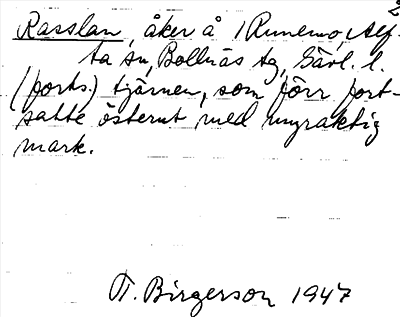 2
Rasslan, åker å Runemo, Alf-
ta sn, Bollnäs tg, Gävl. l.
(forts.) tjärnen, som förr fort-
satte österut med myraktig
mark.
T. Birgerson 1947